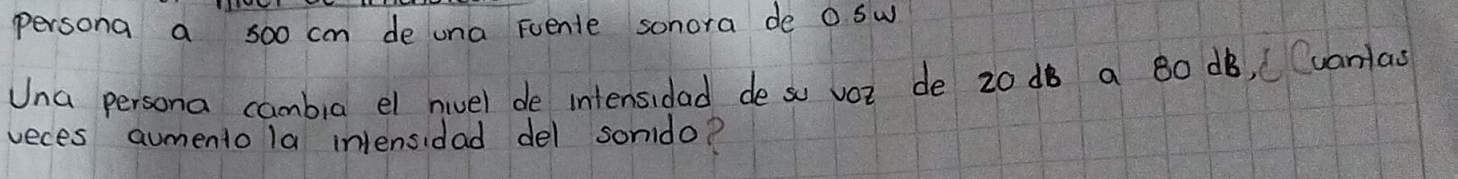 persona a 500 cm de una Fuente sonora de 0 5w
Una persona cambia el nivel de intensidad de su voz de 20 dB a 80 dB, ¿ Cuantas
veces aumento la intensidad del sonido?